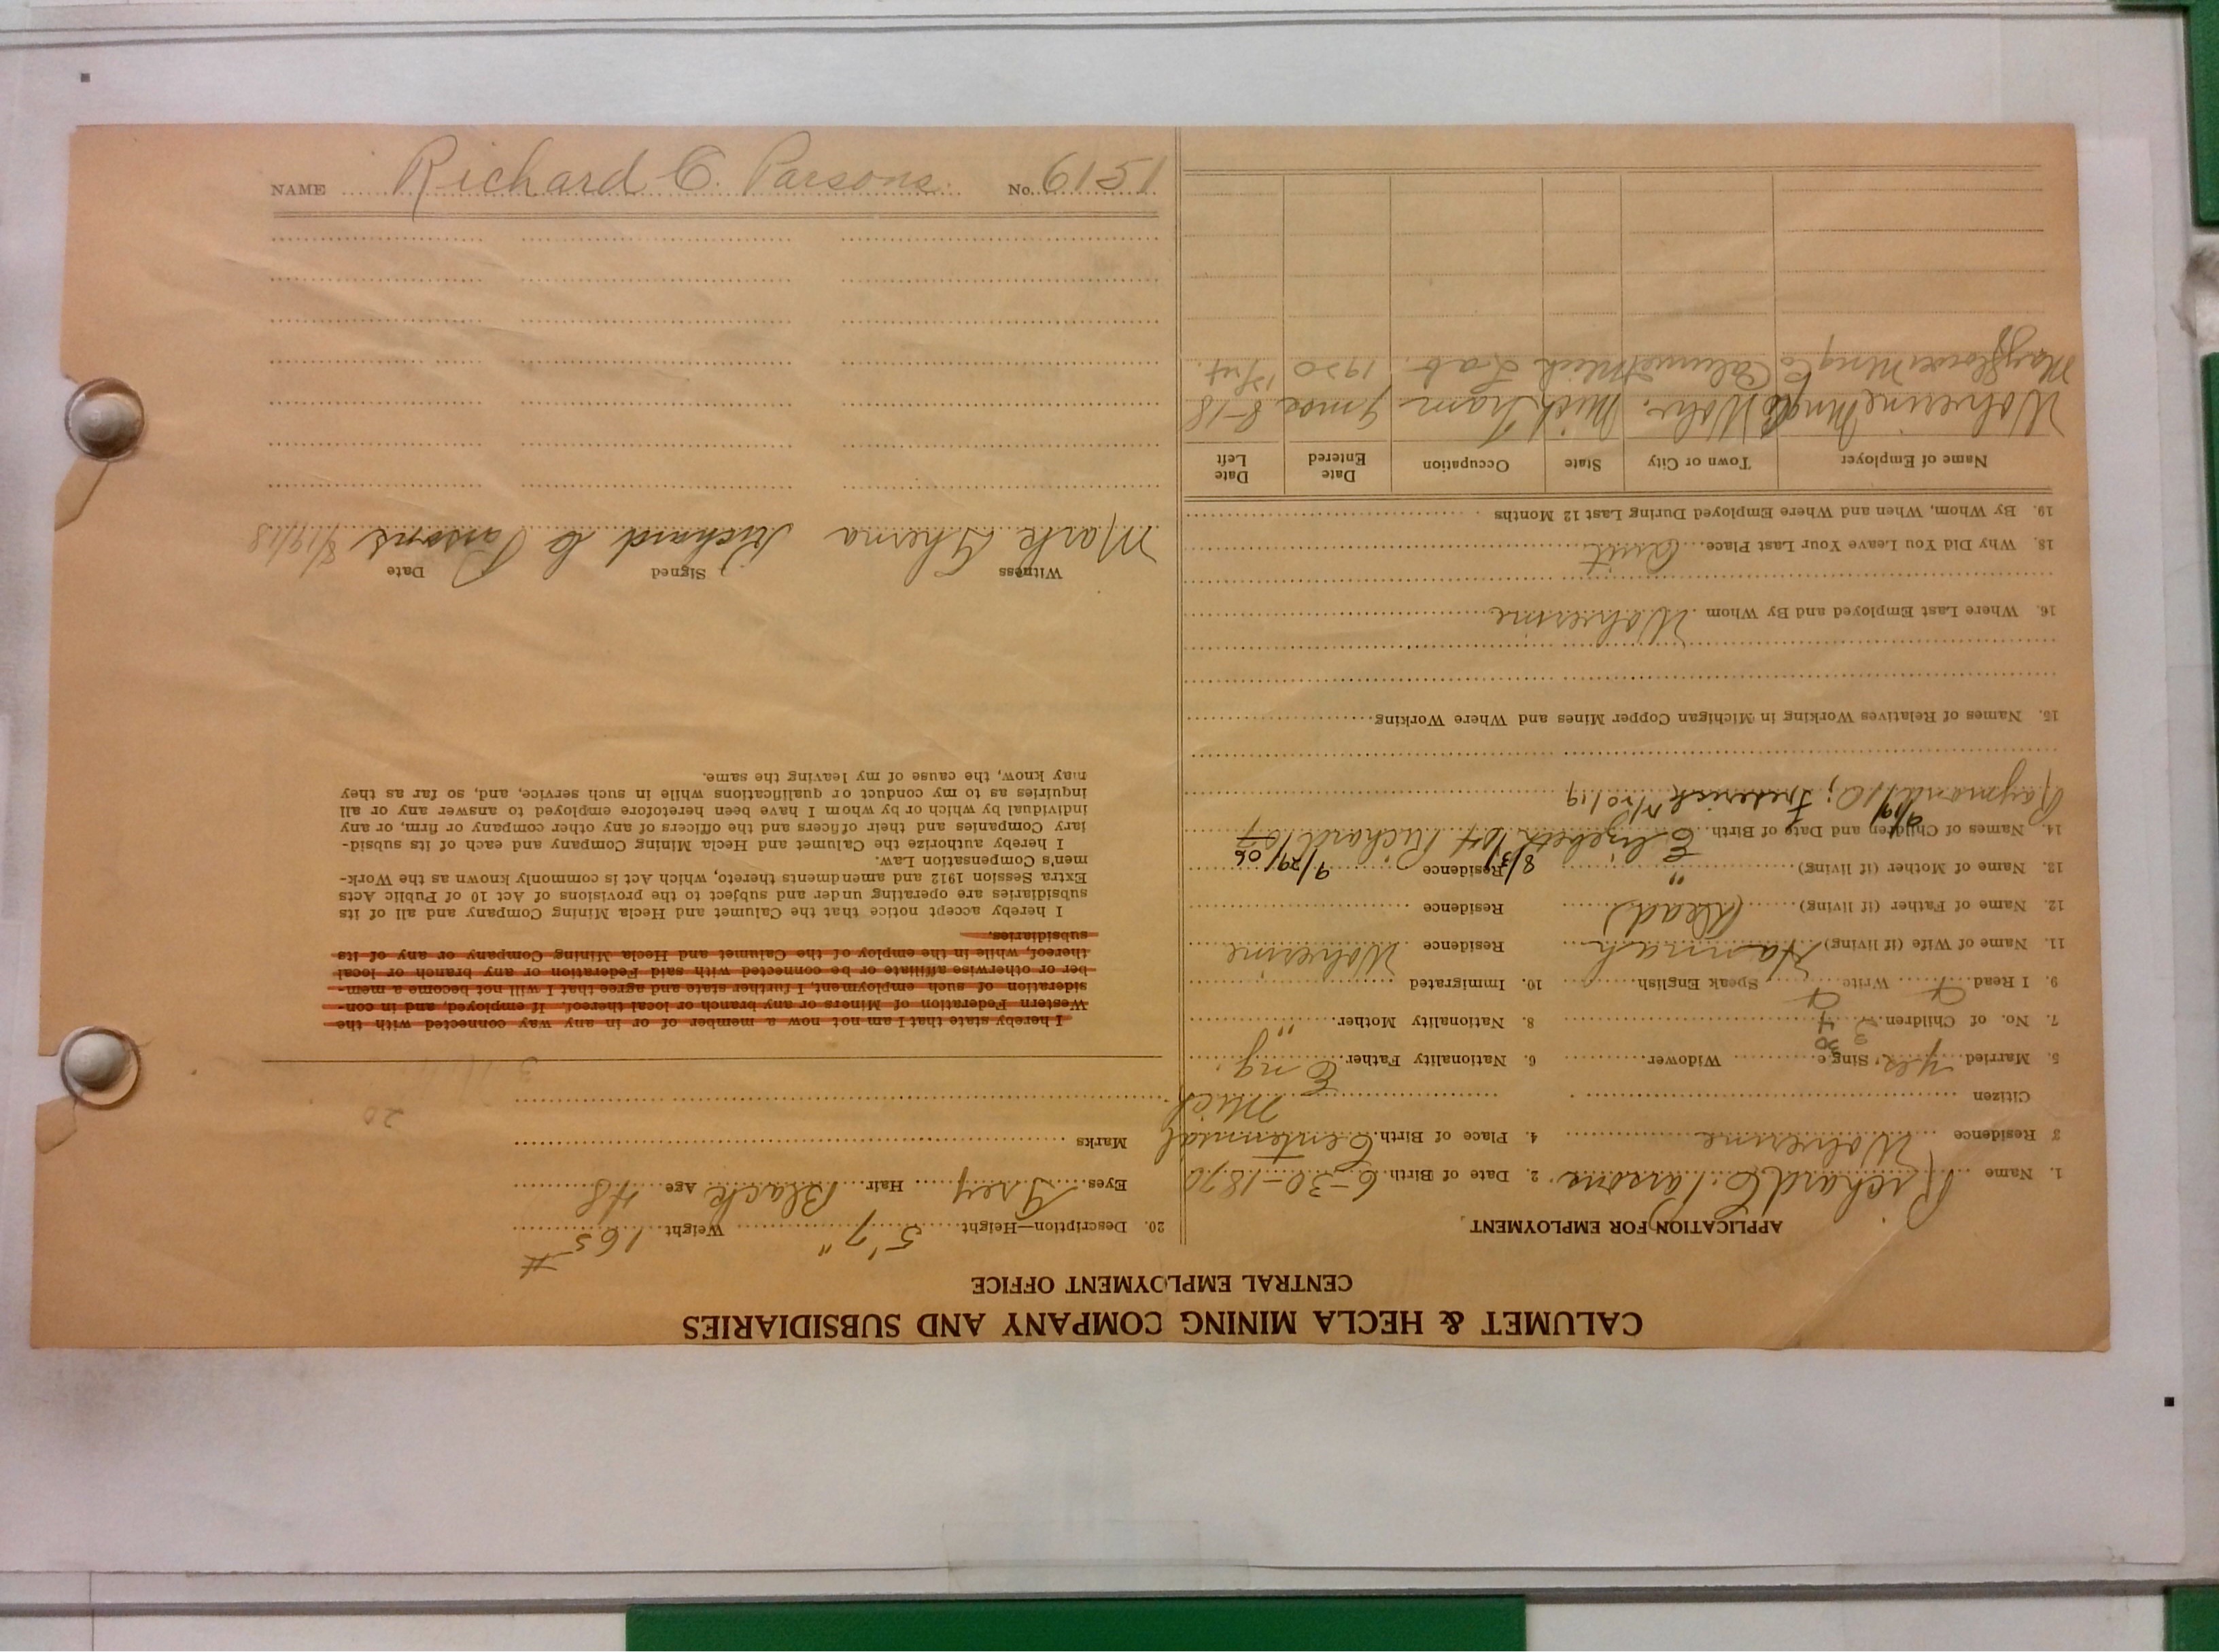 CALUMET & HECLA MINING COMPANY AND SUBSIDIARIES
CENTRAL EMPLOYMENT OFFICE
APPLICATION FOR EMPLOYMENT
1. Name Richard C. Parsons. 2. Date of Birth 6-30-1870
3 Residence Wolverine 4. Place of Birth Centennial
Mich
Citizen
5. Married yes Single Widower 6. Nationality Father Eng.
7. No. of Children 8. Nationality Mother "
9. I Read Write Speak English 10. Immigrated
11. Name of Wife (if living) Hannah Residence Wolverine
12. Name of Father (if living) (Dead) Residence
13. Name of Mother (if living) " Residence
8/3 9/29/06
14. Names of Children and Date of Birth Elizabeth Richard
Raymond Frederick
15. Names of Relatives Working in Michigan Copper Mines and Where Working
16. Where Last Employed and By Whom Wolverine
18. Why Did You Leave Your Last Place Quit
19. By Whom, When and Where Employed During Last 12 Months
Name of Employer Town or City State Occupation Date Entered Date Left
Wolverine Mng Co Wolv. Mich Tram 9 mos 8-18
Mayflower Mng Co Calumet Mich Lab. 1920
20. Description—Height 5'7" Weight 165 #
Eyes Grey Hair Black Age 48
Marks
20
I hereby state that I am not now a member of or in any way connected with the
Western Federation of Miners or any branch or local thereof. If employed, and in con-
sideration of such employment, I further state and agree that I will not become a mem-
ber or otherwise affiliate or be connected with said Federation or any branch or local
thereof, while in the employ of the Calumet and Hecla Mining Company or any of its
subsidiaries.
I hereby accept notice that the Calumet and Hecla Mining Company and all of its
subsidiaries are operating under and subject to the provisions of Act 10 of Public Acts
Extra Session 1912 and amendments thereto, which Act is commonly known as the Work-
men's Compensation Law.
I hereby authorize the Calumet and Hecla Mining Company and each of its subsid-
iary Companies and their officers and the officers of any other company or firm, or any
individual by which or by whom I have been heretofore employed to answer any or all
inquiries as to my conduct or qualifications while in such service, and, so far as they
may know, the cause of my leaving the same.
Witness Signed Date
Mark Gherna Richard C Parsons 8/19/18
NAME Richard C. Parsons. No. 6151